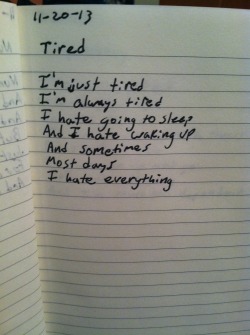 11-20-13
Tired
I'm just tired
I'm always tired
I hate going to sleep
And I hate waking up
And sometimes
Most days
I hate everything